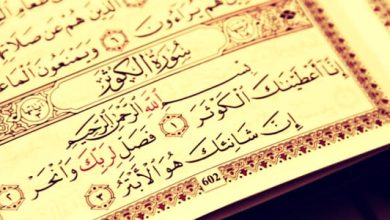 الَّذِينَ هُمْ عَن صَلَاتِهِمْ
الَّذِينَ هُمْ يُرَاءُونَ ۝٦ وَيَمْنَعُونَ الْمَاعُونَ
سُورَةُ الْكَوْثَرِ
بِسْمِ اللَّهِ الرَّحْمَٰنِ الرَّحِيمِ
إِنَّا أَعْطَيْنَاكَ الْكَوْثَرَ ۝١ فَصَلِّ لِرَبِّكَ وَانْحَرْ ۝٢
إِنَّ شَانِئَكَ هُوَ الْأَبْتَرُ ۝٣
602